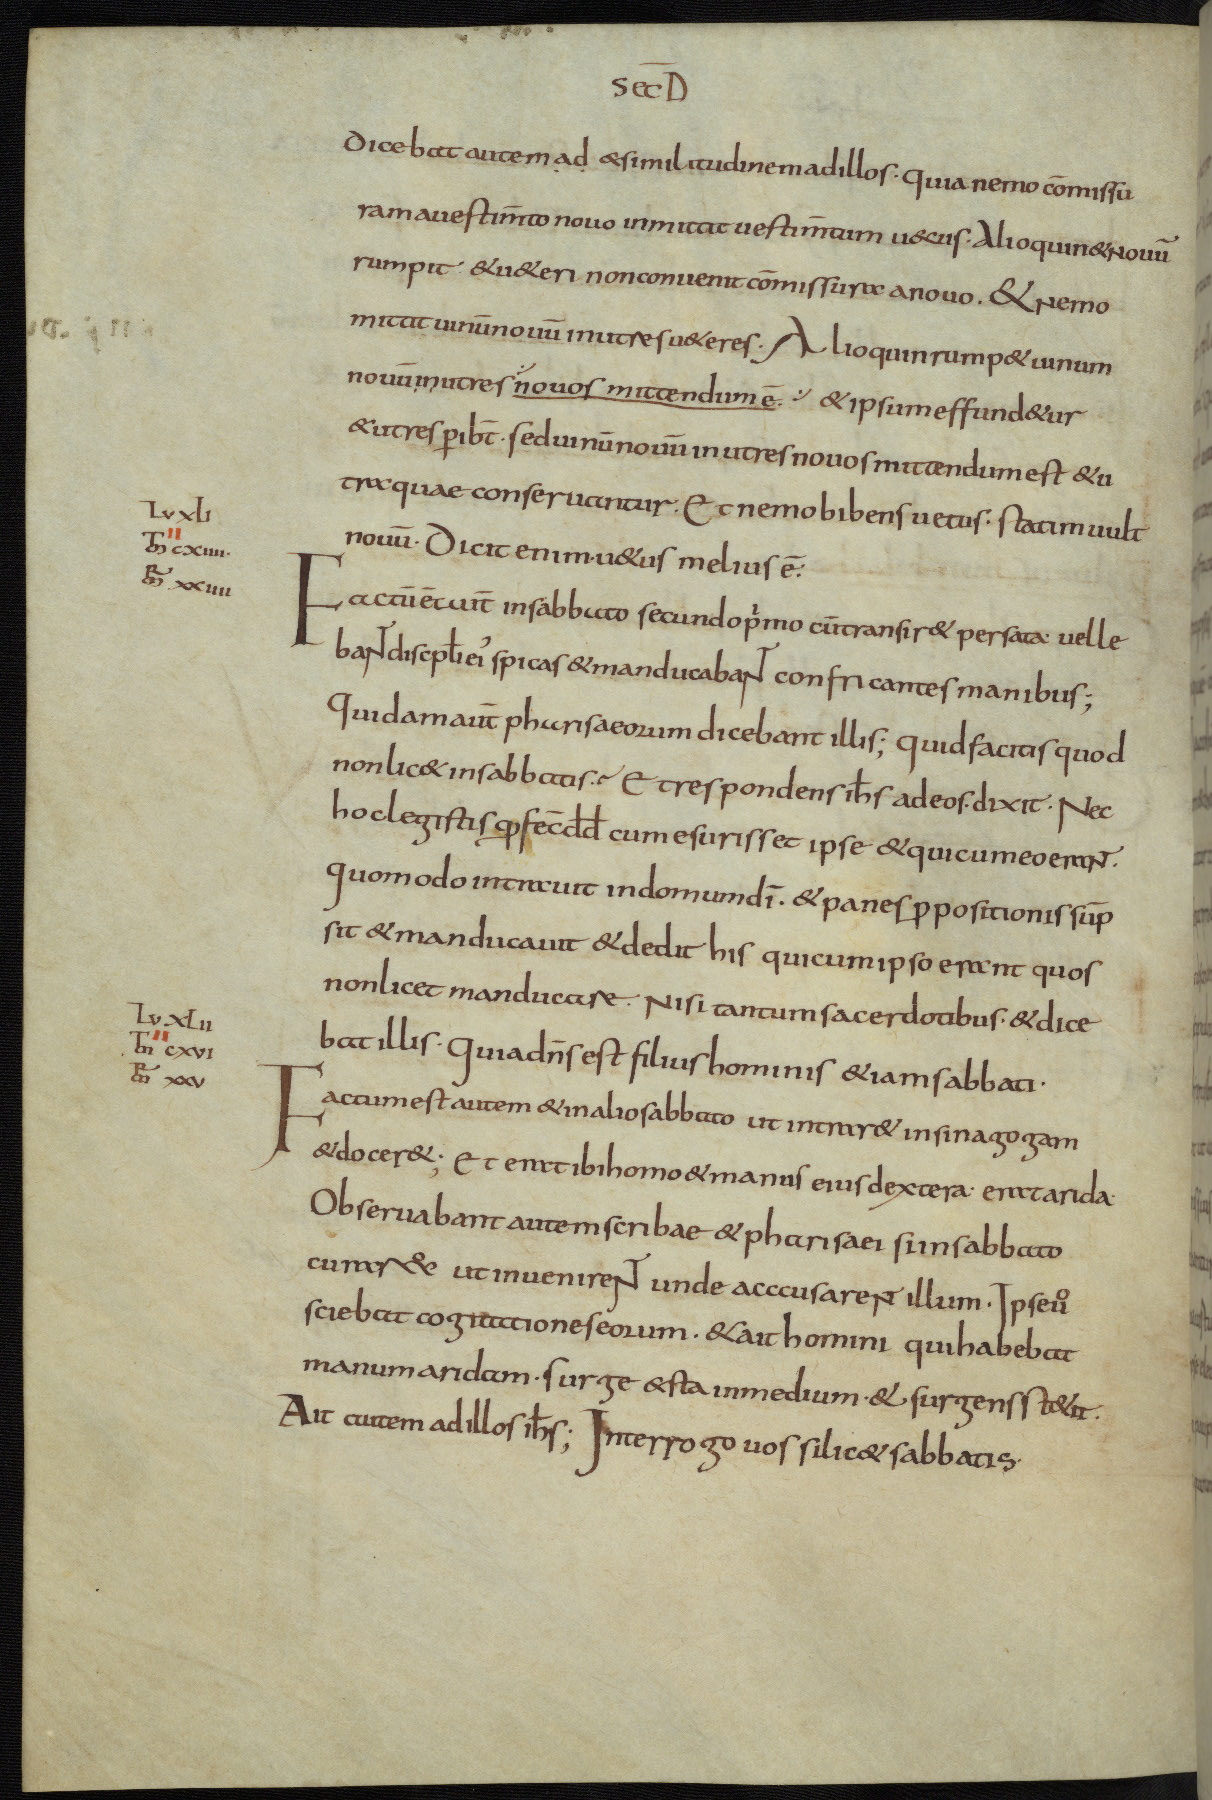 sec̄D
dicebat autem ad & similitudinem adillos· quia nemo cōmissu
ram auestim̄to nouo inmittit uestim̄tum u&us· Alioquin & nouū
rumpit & u&eri non conuenit cōmissura anouo. & nemo
mittit uinū nouū inutres u&eres· Alioquin rump& uinum
nouū inutres nouos mittendum ē· & ipsum effund&ur
& utres ꝑibt̄· sed uinū nouū in utres nouos mittendum est & u
traquae conseruantur. Et nemo bibens uetus· statim uult
nouū· Dicit enim· u&us melius ē·
Lv xLi
m̄ cxiiii·
xxiiii
Factū ē aut̄ insabbato secundo pͥmo cū transir& persata uelle
baNT discipl̄i eiꝰ spicas & manducabaNT confricantes manibus;
Quidam aut̄ pharisaeorum dicebant illis; quid facitis quod
non lic& insabbatis· Et respondens ih̄s adeos· dixit· Nec
hoc legistis qđ fec̄ dd̄ cum esurisset ipse & qui cum eo eraNT·
quomodo intrauit in domum dī· & panes ꝓpositionis sūp
sit & manducauit & dedit his qui cum ipso erant quos
non licet manducare· Nisi tantum sacerdotibus· & dice
bat illis· Quia dn̄s est filius hominis &iam sabbati·
Lv xLii
m̄ cxvi
xxv
Factum est autem & in alio sabbato ut intrar& in sinagogam
& docer&; Et erat ibi homo & manus eius dextera· erat arida·
Obseruabant autem scribae & pharisaei si insabbato
curar& ut inuenireNT unde acccusareNT illum· Ipse uͦ
sciebat cogitationes eorum. & ait homini qui habebat
manum aridam· surge & sta inmedium· & surgens st&it·
Ait autem adillos ih̄s; Interrogo uos si lic& sabbatis·